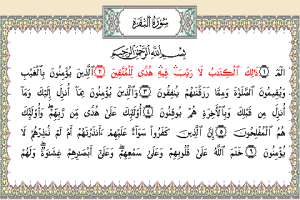 سورة البقرة
بسم الله الرحمن الرحيم
الٓمٓ ١ ذَٰلِكَ ٱلْكِتَٰبُ لَا رَيْبَ فِيهِ هُدًى لِّلْمُتَّقِينَ ٢ ٱلَّذِينَ يُؤْمِنُونَ بِٱلْغَيْبِ
وَيُقِيمُونَ ٱلصَّلَوٰةَ وَمِمَّا رَزَقْنَٰهُمْ يُنفِقُونَ ٣ وَٱلَّذِينَ يُؤْمِنُونَ بِمَآ أُنزِلَ إِلَيْكَ وَمَآ
أُنزِلَ مِن قَبْلِكَ وَبِٱلْءَاخِرَةِ هُمْ يُوقِنُونَ ٤ أُو۟لَٰٓئِكَ عَلَىٰ هُدًى مِّن رَّبِّهِمْ وَأُو۟لَٰٓئِكَ
هُمُ ٱلْمُفْلِحُونَ ٥ إِنَّ ٱلَّذِينَ كَفَرُوا۟ سَوَآءٌ عَلَيْهِمْ ءَأَنذَرْتَهُمْ أَمْ لَمْ تُنذِرْهُمْ لَا
يُؤْمِنُونَ ٦ خَتَمَ ٱللَّهُ عَلَىٰ قُلُوبِهِمْ وَعَلَىٰ سَمْعِهِمْ وَعَلَىٰٓ أَبْصَٰرِهِمْ غِشَٰوَةٌ وَلَهُمْ